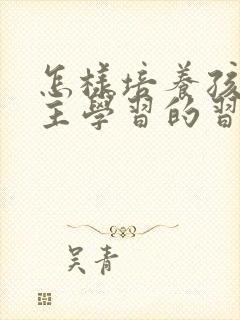 怎樣培養孩
主學習的習
吴青